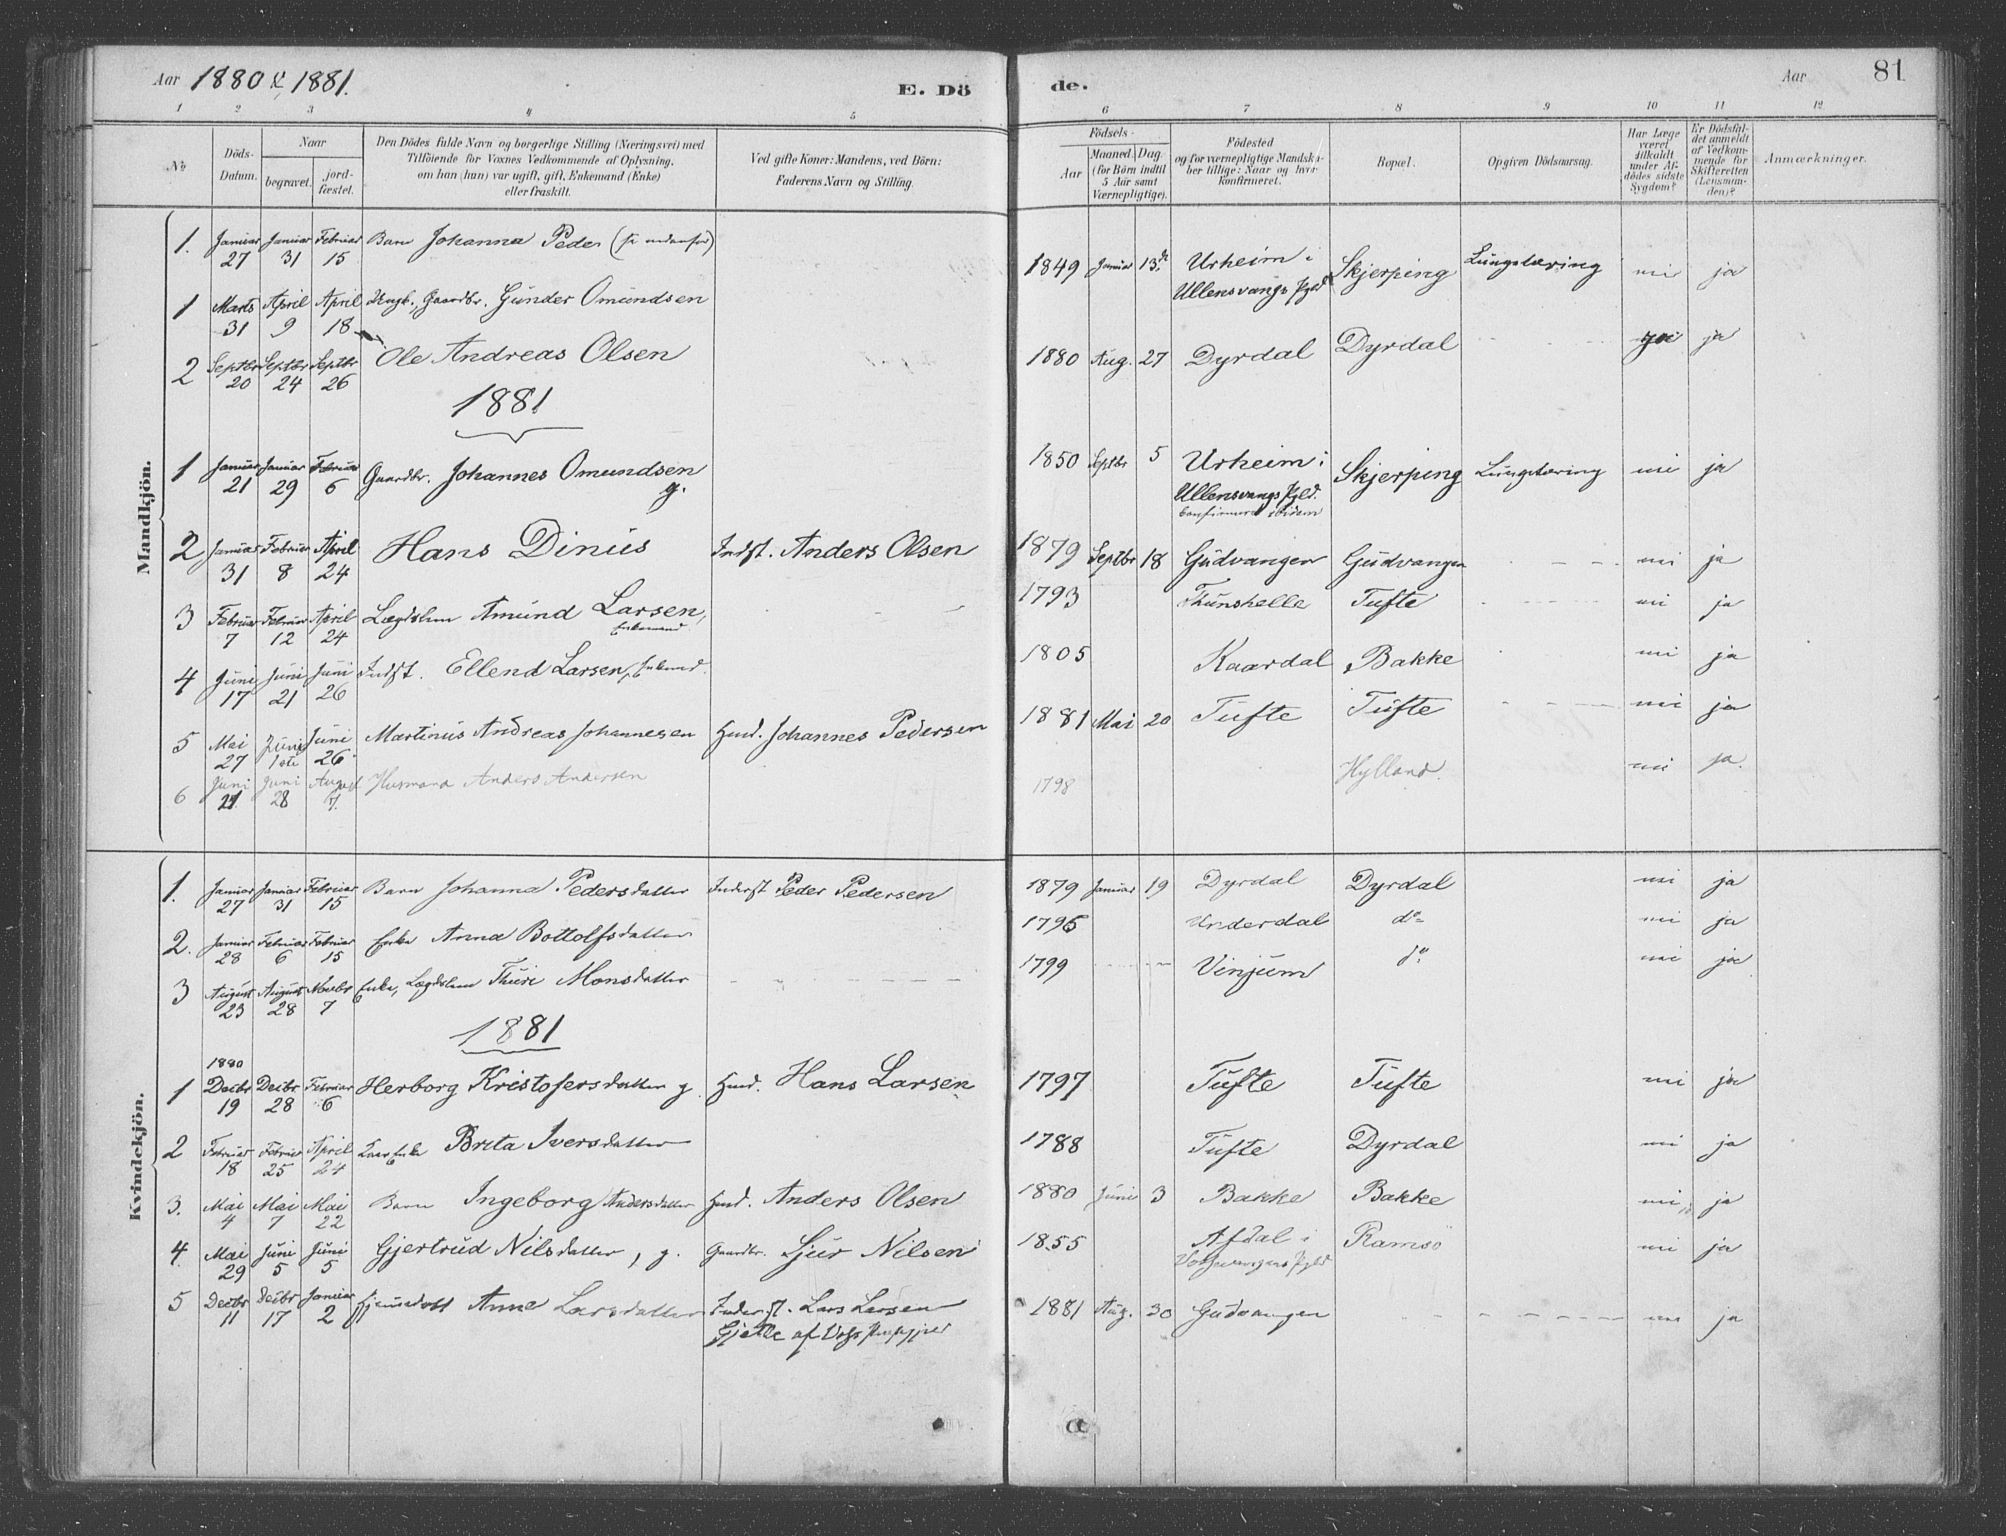 Aar 1880 & 1881.
E. Dö
de.
Aar
81
1 2 3 4 5 6 7 8 9 10 11 12
No
Döds-
Datum.
Naar
begravet.
jord-
fæstet.
Den Dödes fulde Navn og borgerlige Stilling (Næringsvei) med
Tilföiende for Voxnes Vedkommende af Oplysning,
om han (hun) var ugift, gift, Enkemand (Enke)
eller fraskilt.
Ved gifte Koner: Mandens, ved Börn:
Faderens Navn og Stilling.
Födsels-
Aar
Maaned. Dag.
(for Börn indtil
5 Aar samt
Værnepligtige).
Födested
og for værnepligtige Mandska-
ber tillige: Naar og hvor
konfirmeret.
Bopæl.
Opgiven Dödsaarsag.
Har Læge
været
tilkaldt
under Af-
dödes sidste
Sygdom?
Er Dödsfal-
det anmeldt
af Vedkom-
mende for
Skifteretten
(Lensman-
den)?
Anmærkninger.
Mandkjön.
1. Januar 27 Januar 31 Februar 15 Barn Johanna Peder (se nedenfor)
1 Marts 31 April 9 April 18 Gaardbr. Gunder Omundsen 1849 Januar 13de Urheim i Ullensvangs Pgld Skjerping Lungetæring nei ja
2 Septbr 20 Septbr 24 Septbr 26 Ole Andreas Olsen 1880 Aug. 27 Dyrdal Dyrdal ja
1881
1 Januar 21 Januar 29 Februar 6 Gaardbr. Johannes Omundsen g. 1850 Septbr 5 Urheim i Ullensvangs Pgld. Skjerping Lungetæring nei ja
2 Januar 31 Februar 8 April 24 Hans Dinius Indst. Anders Olsen 1879 Septbr 18 Gudvangen Gudvangen nei ja
3 Februar 7 Februar 12 April 24 Lægdslem Amund Larsen, Enkemand 1793 Thunshelle Tufte nei ja
4 Juni 17 Juni 21 Juni 26 Indst. Ellend Larsen, Enkemd. 1805 Kaardal Bakke nei ja
5 Mai 27 Juni 1ste Juni 26 Martinus Andreas Johannesen Husmd. Johannes Pedersen 1881 Mai 20 Tufte Tufte nei ja
6 Juni 21 Juni 28 August 7. Husmand Anders Andersen 1798 Hylland. nei ja.
Kvindekjön.
1. Januar 27 Januar 31 Februar 15 Barn Johanna Pedersdatter Inderst Peder Pedersen 1879 Januar 19 Dyrdal Dyrdal nei ja
2. Januar 28 Februar 6 Februar 15 Enke Anna Bottolfsdatter 1796 Underdal do nei ja
3 August 23 August 28 Novbr 7 Enke, Lægdslem Thuri Monsdatter 1799 Vinjum do nei ja
1881
1 1880 Decbr 19 Decbr 28 Februar 6 Herborg Kristofersdatter g. Husmd. Hans Larsen 1797 Tufte Tufte nei ja
2 Februar 18 Februar 25 April 24 Enke Brita Iversdatter 1788 Tufte Dyrdal nei ja
3. Mai 4 Mai 7 Mai 22 Barn Ingeborg Andersdatter Husmd. Anders Olsen 1880 Juni 3 Bakke Bakke nei ja
4. Mai 29 Juni 5 Juni 5 Gjertrud Nilsdatter, g. Gaardbr. Sjur Nilsen 1855 Afdal i Ramsö nei ja
5 Decbr 11 Decbr 17 Januar 2 hjemmedøbt Anna Larsdatter Inderst. Lars Larsen Gjelle af Voss Præstegjeld 1881 Aug. 30 Gudvangen nei ja